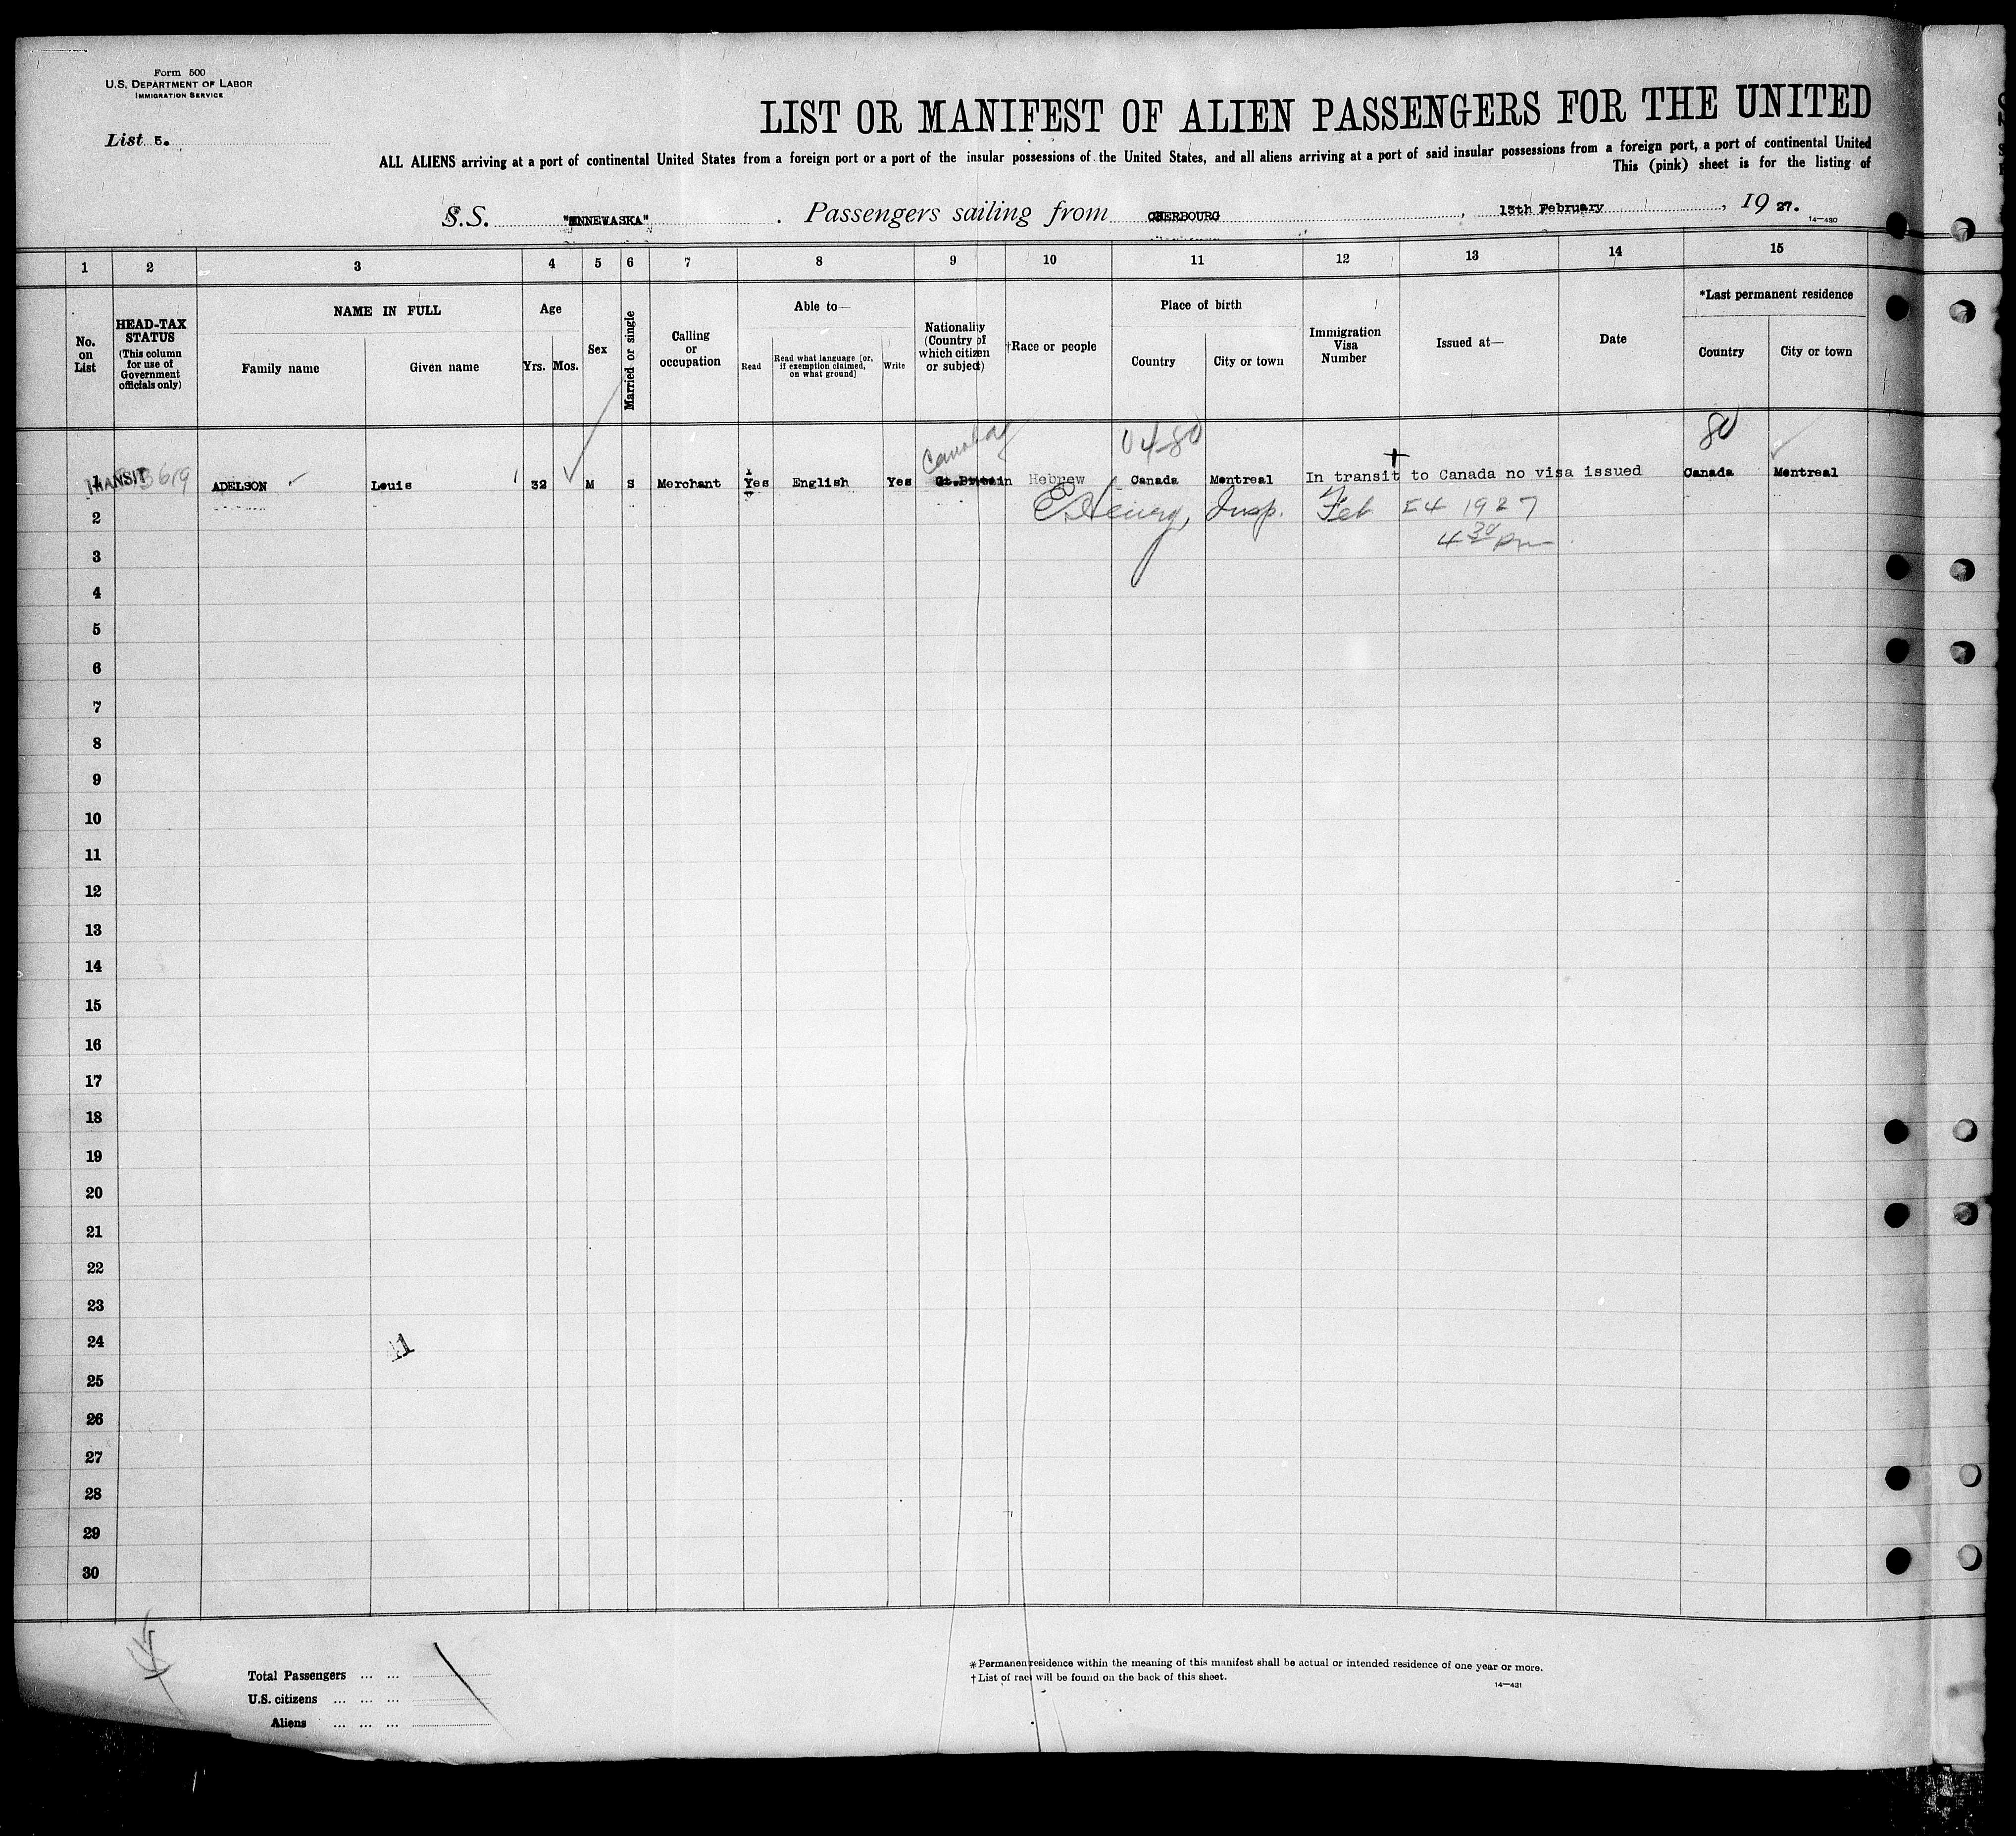 Form 500
U.S. DEPARTMENT OF LABOR
IMMIGRATION SERVICE
List 5.
LIST OR MANIFEST OF ALIEN PASSENGERS FOR THE UNITED
ALL ALIENS arriving at a port of continental United States from a foreign port or a port of the insular possessions of the United States, and all aliens arriving at a port of said insular possessions from a foreign port, a port of continental United
This (pink) sheet is for the listing of
S.S. "MINNEWASKA" . Passengers sailing from CHERBOURG , 13th February , 19 27.
14—430
1 2 3 4 5 6 7 8 9 10 11 12 13 14 15
No. on List
HEAD-TAX STATUS
(This column for use of Government officials only)
NAME IN FULL
Family name Given name
Age
Yrs. Mos.
Sex
Married or single
Calling or occupation
Able to—
Read
Read what language [or, if exemption claimed, on what ground]
Write
Nationality (Country of which citizen or subject)
†Race or people
Place of birth
Country City or town
Immigration Visa Number
Issued at—
Date
*Last permanent residence
Country City or town
Canada 04-80 80
1 TRANSIT 3619 ADELSON Louis 32 M S Merchant Yes English Yes Gt.Britain Hebrew Canada Montreal In transit to Canada no visa issued Canada Montreal
2 Insp. Feb 24 1927
3 4 30 pm
4
5
6
7
8
9
10
11
12
13
14
15
16
17
18
19
20
21
22
23
24
25
26
27
28
29
30
Total Passengers ... ...
U.S. citizens ... ... ...
Aliens ... ... ...
*Permanen residence within the meaning of this manifest shall be actual or intended residence of one year or more.
†List of rac will be found on the back of this sheet.
14—431